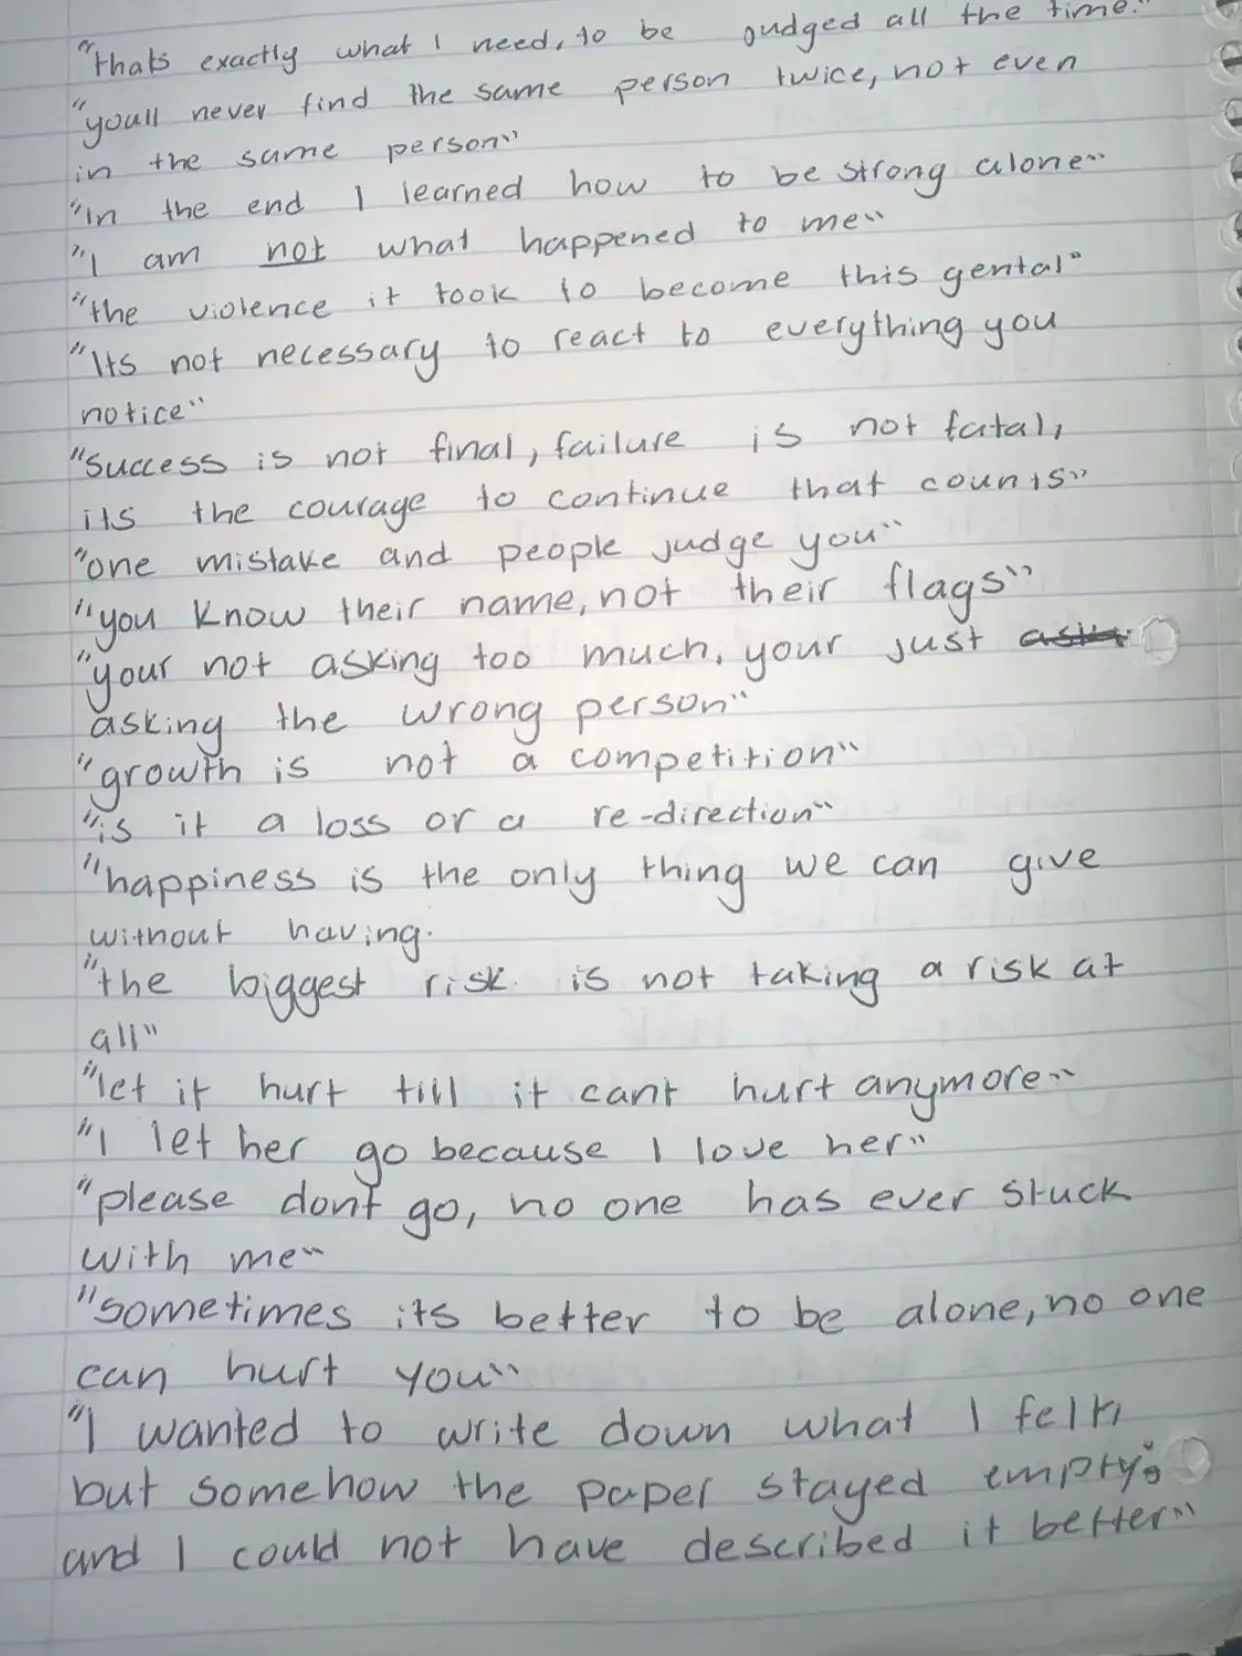 "thats exactly what I need, to be judged all the time."
"youll never find the same person twice, not even
in the same person"
"in the end I learned how to be strong alone"
"I am not what happened to me"
"the violence it took to become this gental"
"Its not necessary to react to everything you
notice"
"success is not final, failure is not fatal,
its the courage to continue that counts"
"one mistake and people judge you"
"you know their name, not their flags"
"your not asking too much, your just
asking the wrong person"
"growth is not a competition"
"is it a loss or a re-direction"
"happiness is the only thing we can give
without having.
"the biggest risk is not taking a risk at
all"
"let it hurt till it cant hurt anymore"
"I let her go because I love her"
"please dont go, no one has ever stuck
with me"
"sometimes its better to be alone, no one
can hurt you"
"I wanted to write down what I felt,
but somehow the paper stayed empty,
and I could not have described it better"